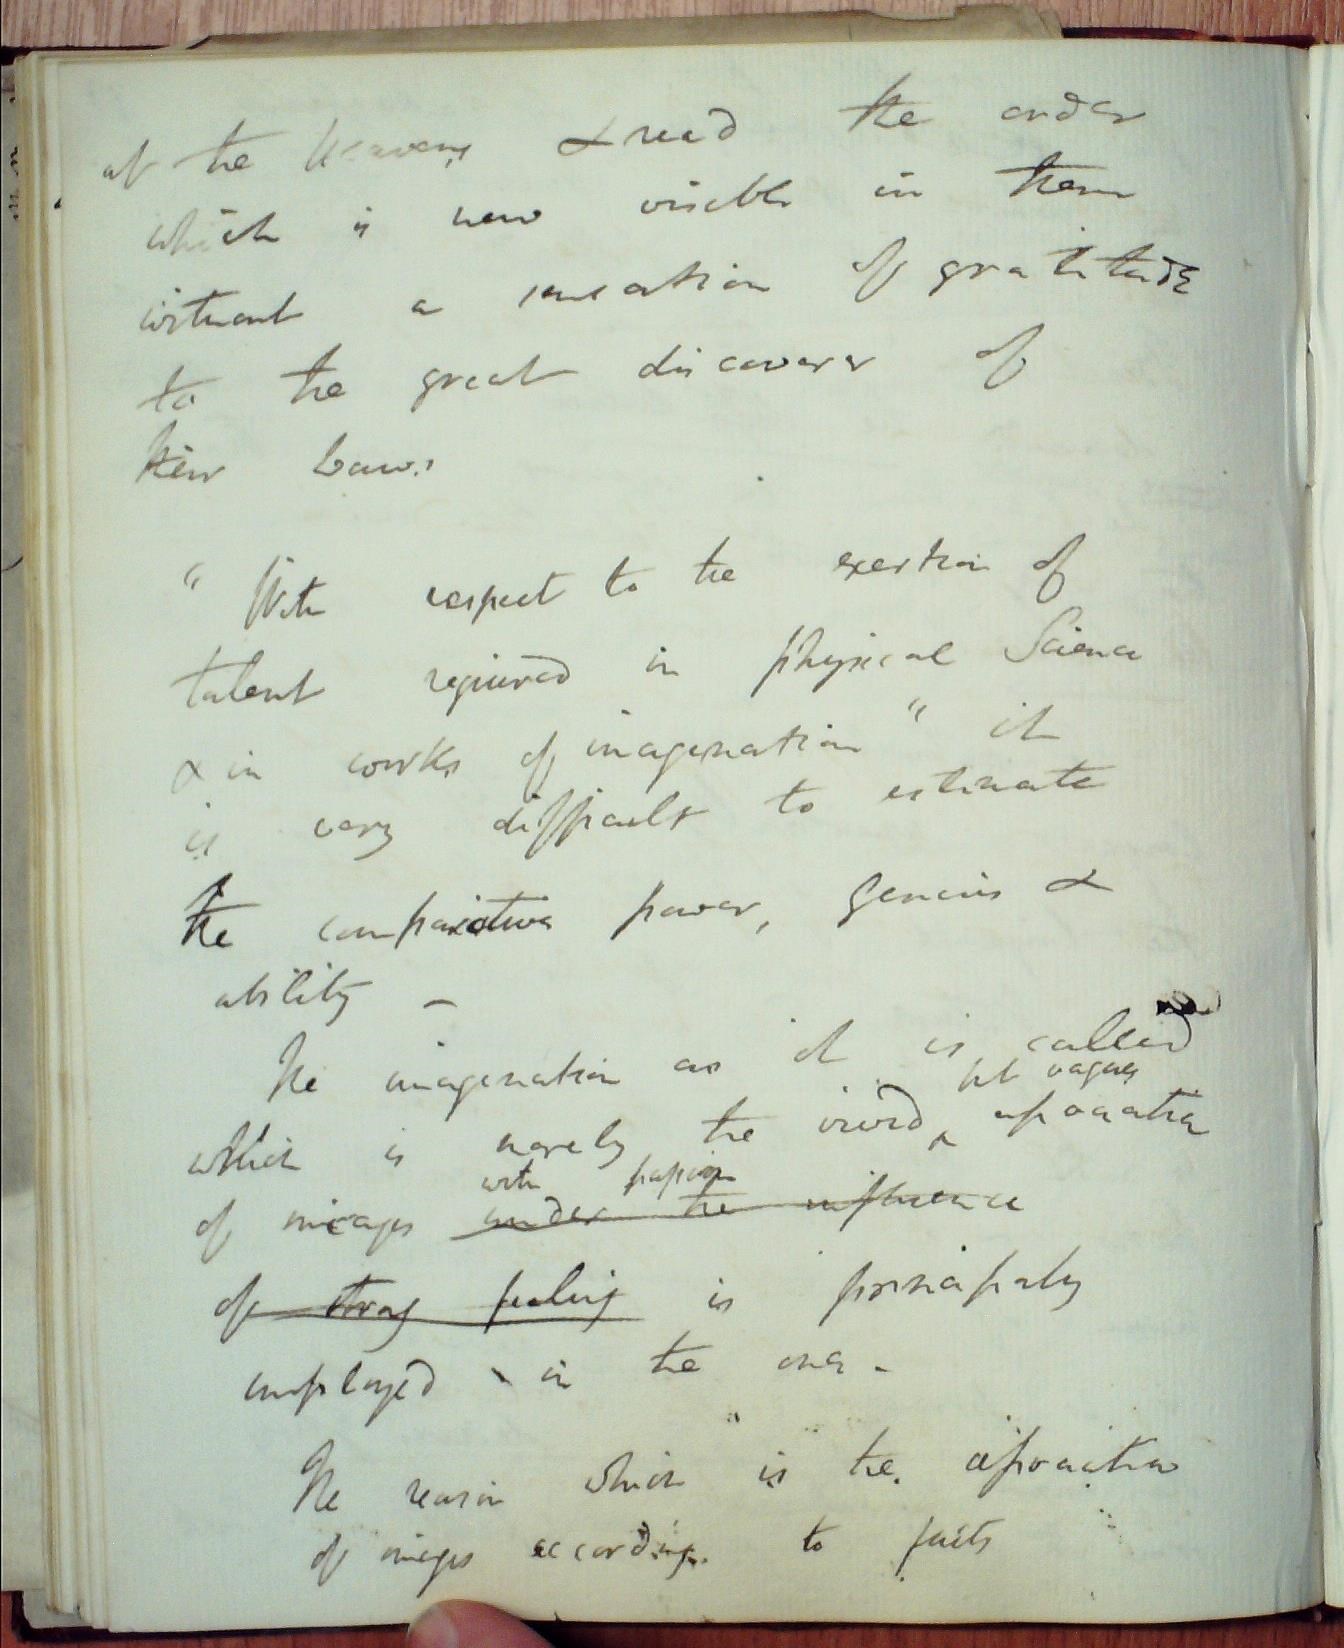 at the Heavens & read the order
which is now visible in them
without a sensation of gratitude
to the great discoverer of
their Laws.
"With respect to the exertion of
talent required in physical Science
& in works of imagination" it
is very difficult to estimate
the comparative power, genius &
ability –
The imagination as it is called
but vague
which is merely the vivid ^ association
with passion
of images under the influence
of strong feeling is principally
employed in the one –
The reason which is the association
of images according to facts